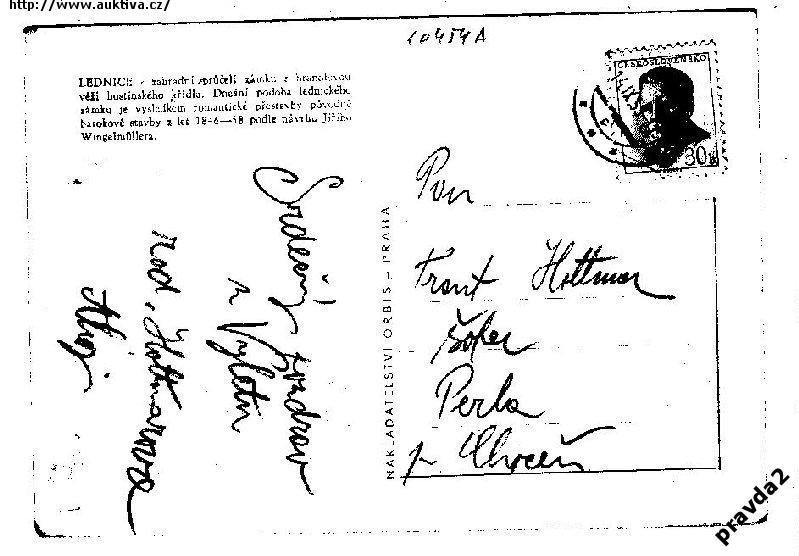 http://www.auktiva.cz/
10454A
LEDNICE - zahradní průčelí zámku s hranolovou
věží hostinského křídla. Dnešní podoba lednického
zámku je výsledkem romantické přestavby původně
barokové stavby z let 1846—58 podle návrhu Jiřího
Wingelmüllera.
ČESKOSLOVENSKO
30
NAKLADATELSTVÍ ORBIS - PRAHA
Pan
Frant Hottmar
Perla
p
Srdečný pozdrav
z Výletu
rod. Hottmarova
pravda2